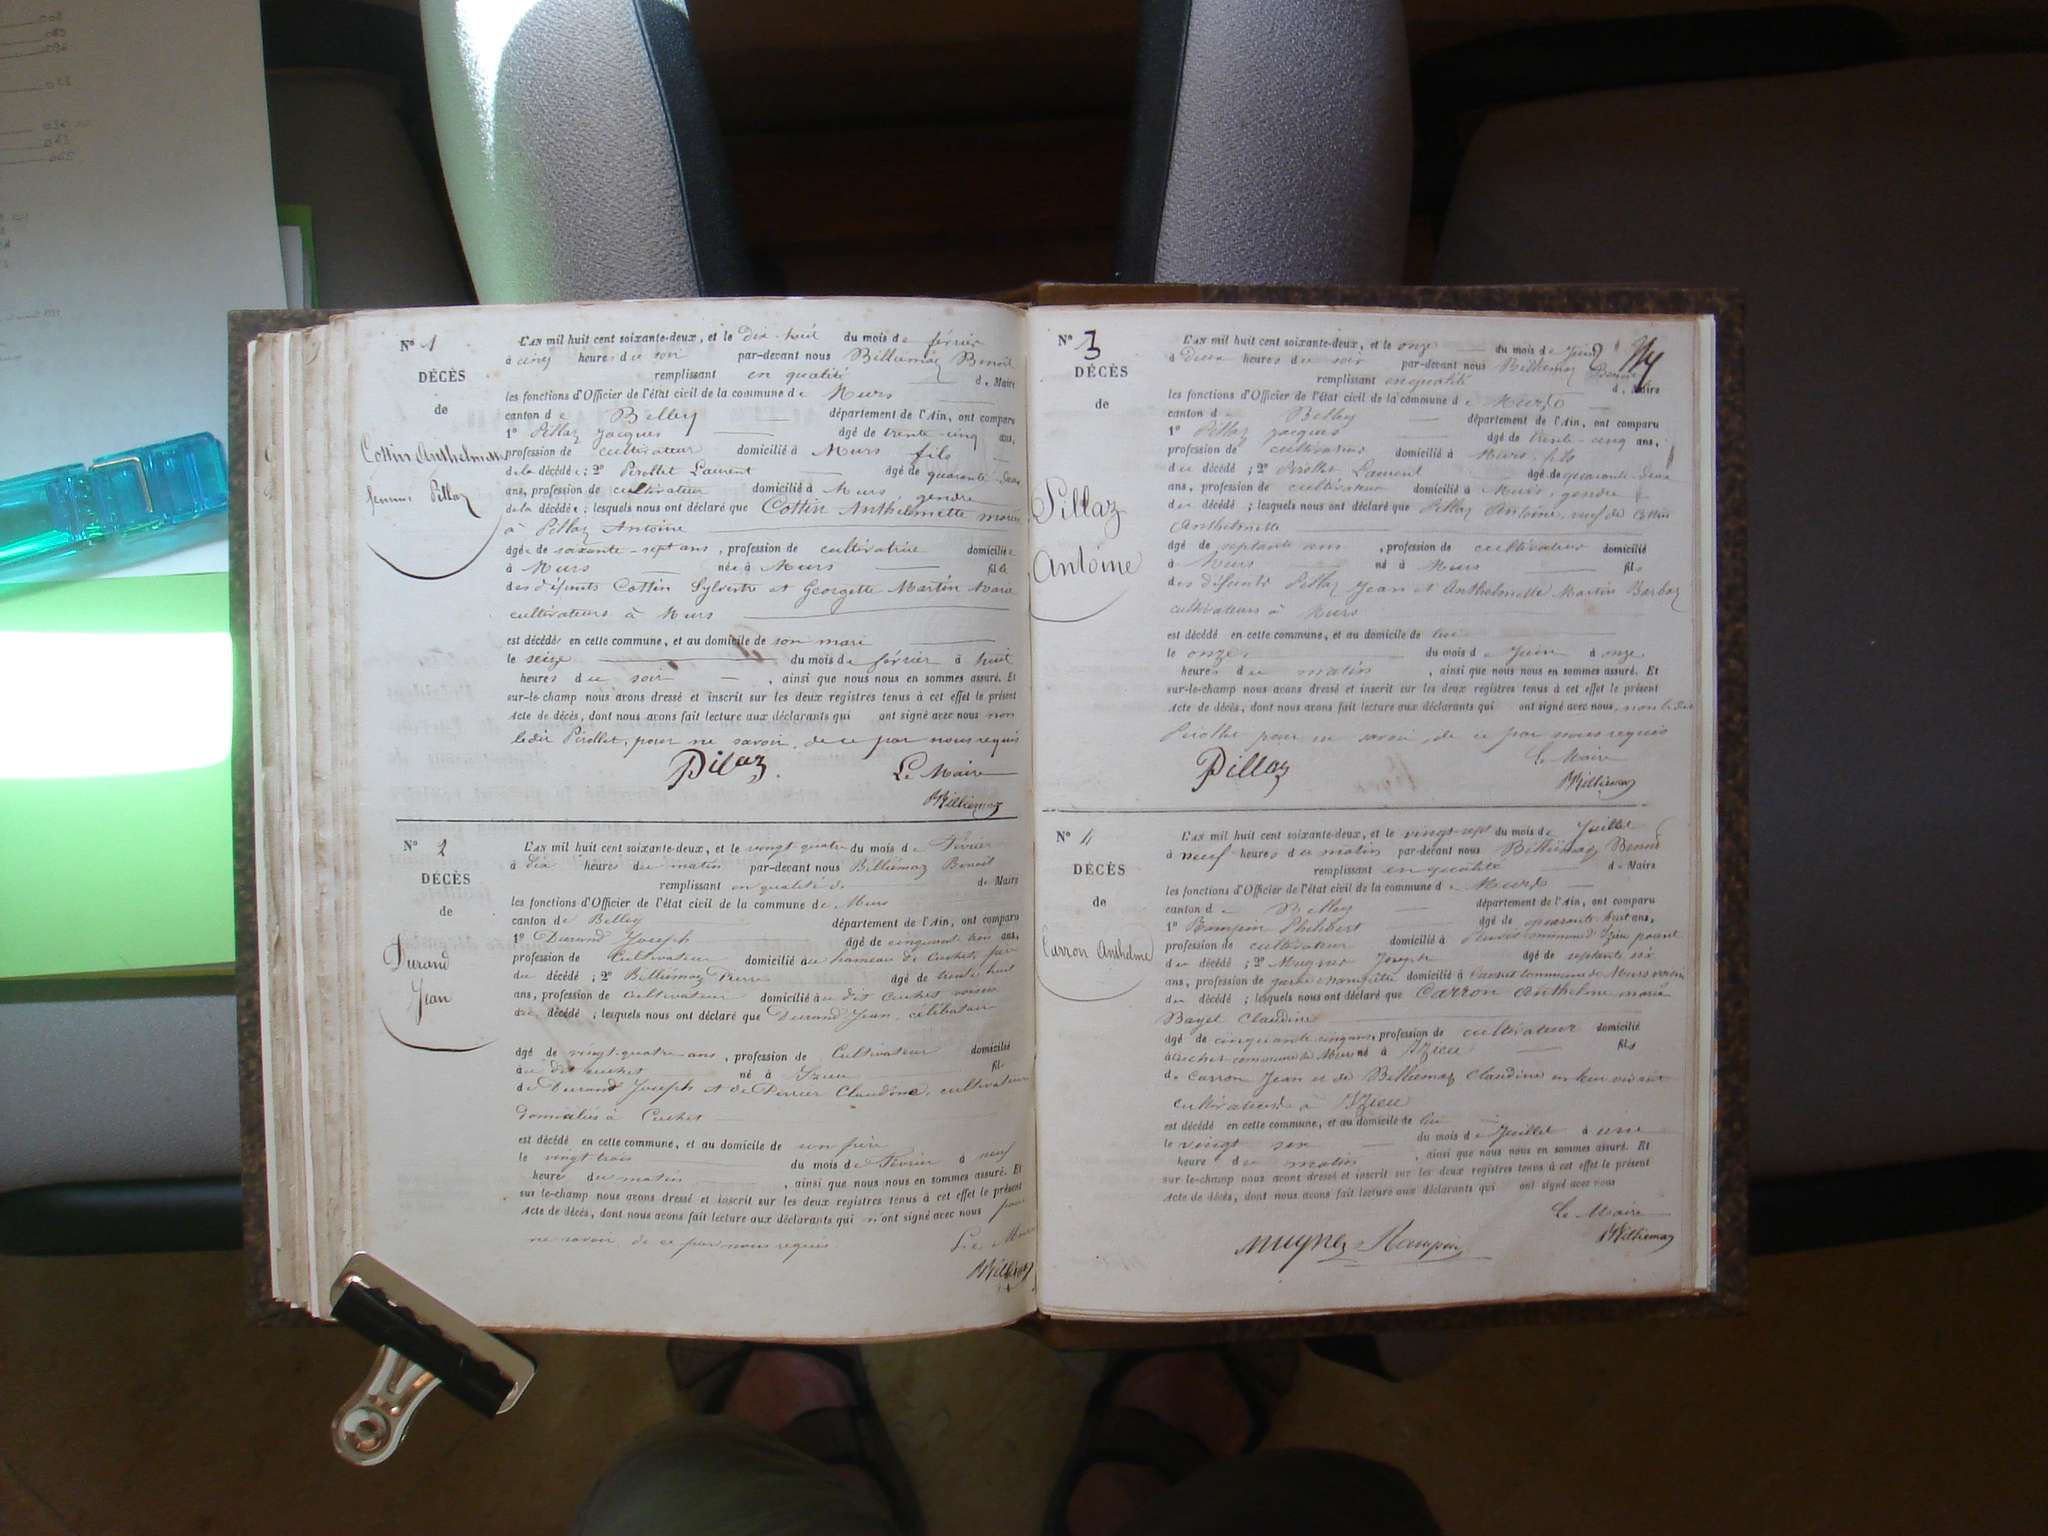 N° 1
DÉCÈS
de
Cottin Anthelmette
femme Pillaz
L'AN mil huit cent soixante-deux, et le dix-huit du mois de février
à cinq heures du soir par-devant nous Billiemaz Benoit
remplissant en qualité de Maire
les fonctions d'Officier de l'état civil de la commune de Murs
canton de Belley département de l'Ain, ont comparu
1° Pillaz Jacques âgé de trente-cinq ans,
profession de cultivateur domicilié à Murs fils
de la décédée; 2° Pirollet Laurent âgé de quarante-deux
ans, profession de cultivateur domicilié à Murs, gendre
de la décédée; lesquels nous ont déclaré que Cottin Anthelmette mariée
à Pillaz Antoine
âgée de soixante-sept ans, profession de cultivatrice domiciliée
à Murs née à Murs fille
des défunts Cottin Sylvestre et Georgette Martin Marie
cultivateurs à Murs
est décédée en cette commune, et au domicile de son mari
le seize du mois de février à huit
heures du soir, ainsi que nous nous en sommes assuré. Et
sur-le-champ nous avons dressé et inscrit sur les deux registres tenus à cet effet le présent
Acte de décès, dont nous avons fait lecture aux déclarants qui ont signé avec nous non
ledit Pirollet, pour ne savoir, de ce par nous requis
Pilaz
Le Maire
Billiemaz
N° 2
DÉCÈS
de
Durand
Jean
L'AN mil huit cent soixante-deux, et le vingt-quatre du mois de Février
à dix heures du matin par-devant nous Billiemaz Benoit
remplissant en qualité de de Maire
les fonctions d'Officier de l'état civil de la commune de Murs
canton de Belley département de l'Ain, ont comparu
1° Durand Joseph âgé de cinquante trois ans,
profession de Cultivateur domicilié au hameau de Cuchet, père
du décédé; 2° Billiemaz Pierre âgé de trente huit
ans, profession de cultivateur domicilié au dit Cuchet voisin
du décédé; lesquels nous ont déclaré que Durand Jean, célibataire
âgé de vingt-quatre ans, profession de Cultivateur domicilié
au dit Cuchet né à Izieu fils
de Durand Joseph et de Perrier Claudine, cultivateurs
domiciliés à Cuchet
est décédé en cette commune, et au domicile de son père
le vingt-trois du mois de Février à neuf
heures du matin, ainsi que nous nous en sommes assuré. Et
sur le-champ nous avons dressé et inscrit sur les deux registres tenus à cet effet le présent
Acte de décès, dont nous avons fait lecture aux déclarants qui n'ont signé avec nous pour
ne savoir, de ce par nous requis
Le Maire
Billiemaz
N° 3
DÉCÈS
de
Pillaz
Antoine
L'AN mil huit cent soixante-deux, et le onze du mois de Juin
à deux heures du soir par-devant nous Billiemaz Benoit
remplissant en qualité de Maire
les fonctions d'Officier de l'état civil de la commune de Murs
canton de Belley département de l'Ain, ont comparu
1° Pillaz Jacques âgé de trente-cinq ans,
profession de cultivateur domicilié à Murs, fils
du décédé; 2° Pirollet Laurent âgé de quarante-deux
ans, profession de cultivateur domicilié à Murs, gendre
du décédé; lesquels nous ont déclaré que Pillaz Antoine, veuf de Cottin
Anthelmette
âgé de septante ans, profession de cultivateur domicilié
à Murs né à Murs fils
des défunts Pillaz Jean et Anthelmette Martin Barbaz
cultivateurs à Murs
est décédé en cette commune, et au domicile de lui
le onze du mois de Juin à onze
heures du matin, ainsi que nous nous en sommes assuré. Et
sur-le-champ nous avons dressé et inscrit sur les deux registres tenus à cet effet le présent
Acte de décès, dont nous avons fait lecture aux déclarants qui ont signé avec nous, non ledit
Pirollet pour ne savoir, de ce par nous requis
Pillaz
Le Maire
Billiemaz
N° 4
DÉCÈS
de
Carron Anthelme
L'AN mil huit cent soixante-deux, et le vingt-sept du mois de Juillet
à neuf heures du matin par-devant nous Billiemaz Benoit
remplissant en qualité de Maire
les fonctions d'Officier de l'état civil de la commune de Murs
canton de Belley département de l'Ain, ont comparu
1° Rampin Philibert âgé de quarante-huit ans,
profession de cultivateur domicilié à commune d'Izieu parent
du décédé; 2° Mugnez Joseph âgé de septante six
ans, profession de garde champêtre domicilié à commune de Murs voisin
du décédé; lesquels nous ont déclaré que Carron Anthelme marié
Bayet Claudine
âgé de cinquante cinq ans, profession de cultivateur domicilié
à Cuchet commune de Murs né à Izieu fils
de Carron Jean et de Billiemaz Claudine en leur vivant
cultivateurs à Izieu
est décédé en cette commune, et au domicile de lui
le vingt six du mois de Juillet à une
heure du matin, ainsi que nous nous en sommes assuré. Et
sur le-champ nous avons dressé et inscrit sur les deux registres tenus à cet effet le présent
Acte de décès, dont nous avons fait lecture aux déclarants qui ont signé avec nous
Le Maire
Mugnez Rampin
Billiemaz